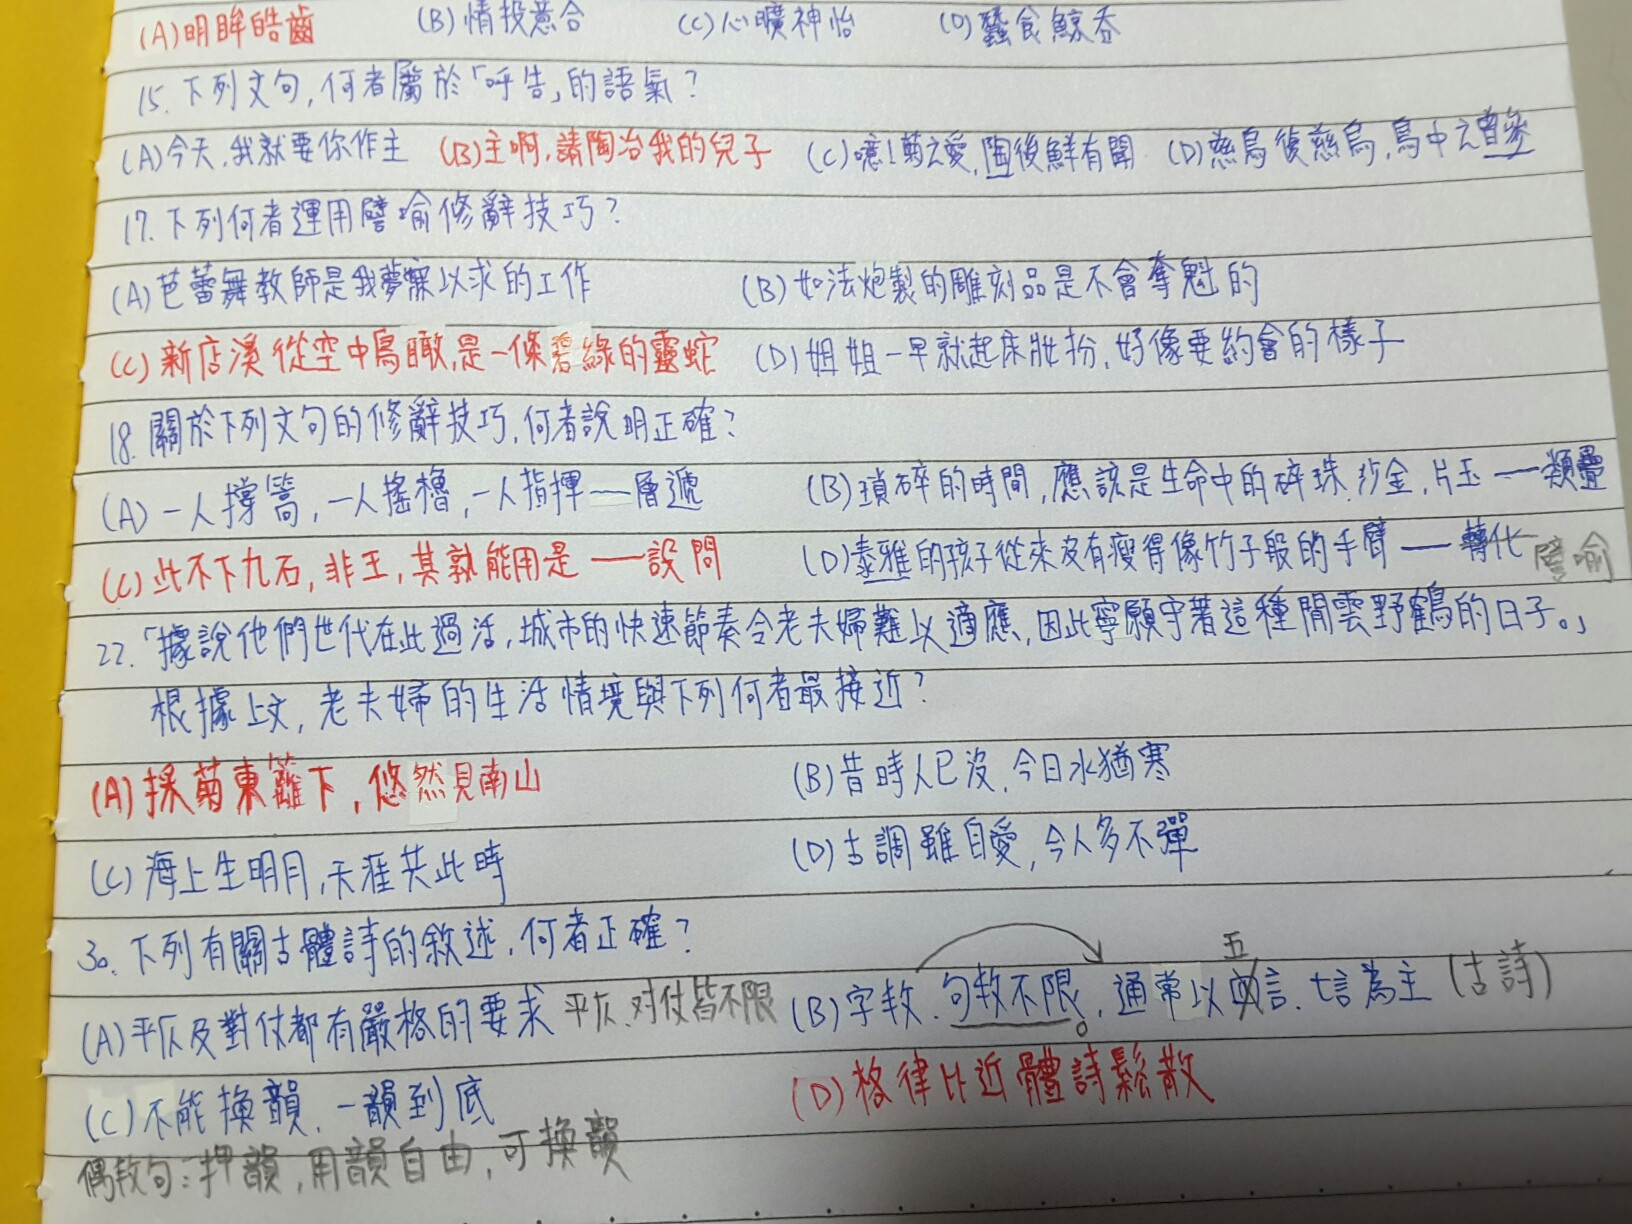 (A)明眸皓齒 (B)情投意合 (C)心曠神怡 (D)蠶食鯨吞
15. 下列文句,何者屬於「呼告」的語氣?
(A)今天,我就要你作主 (B)主啊,請陶冶我的兒子 (C)噫!菊之愛,陶後鮮有聞 (D)慈烏復慈烏,鳥中之曾參
17. 下列何者運用譬喻修辭技巧?
(A)芭蕾舞教師是我夢寐以求的工作 (B)如法炮製的雕刻品是不會奪魁的
(C)新店溪從空中鳥瞰,是一條碧綠的靈蛇 (D)姐姐一早就起床妝扮,好像要約會的樣子
18. 關於下列文句的修辭技巧,何者說明正確?
(A)一人撐篙,一人搖櫓,一人指揮——層遞 (B)瑣碎的時間,應該是生命中的碎珠、沙金、片玉——類疊
(C)此不下九石,非王,其孰能用是——設問 (D)泰雅的孩子從來沒有瘦得像竹子般的手臂——轉化 譬喻
22.「據說他們世代在此過活,城市的快速節奏令老夫婦難以適應,因此寧願守著這種閒雲野鶴的日子。」
根據上文,老夫婦的生活情境與下列何者最接近?
(A)採菊東籬下,悠然見南山 (B)昔時人已沒,今日水猶寒
(C)海上生明月,天涯共此時 (D)古調雖自愛,今人多不彈
30. 下列有關古體詩的敘述,何者正確?
五
(A)平仄及對仗都有嚴格的要求 平仄、对仗皆不限 (B)字数、句数不限。,通常以言、七言為主 (古詩)
(C)不能換韻,一韻到底 (D)格律比近體詩鬆散
偶数句:押韻,用韻自由,可換韻